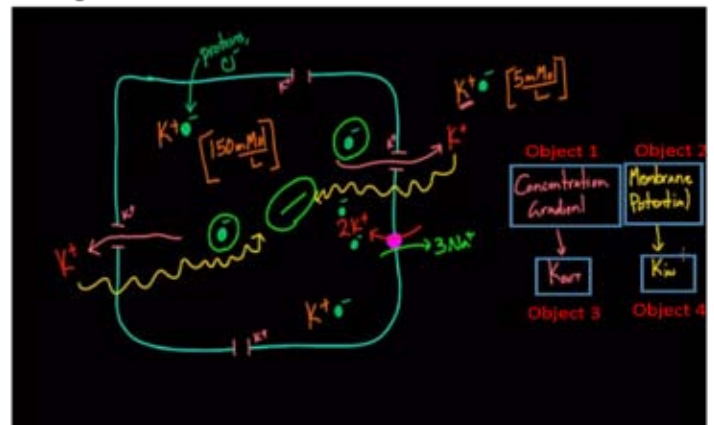 proteins,
Cl-
K+
K+
[150 mMol/L]
K+ [5 mMol/L]
K+
K+
K+
K+
2K+
3Na+
K+
K+
Object 1
Object 2
Concentration
Gradient
Membrane
Potential
Kout
Kin
Object 3
Object 4